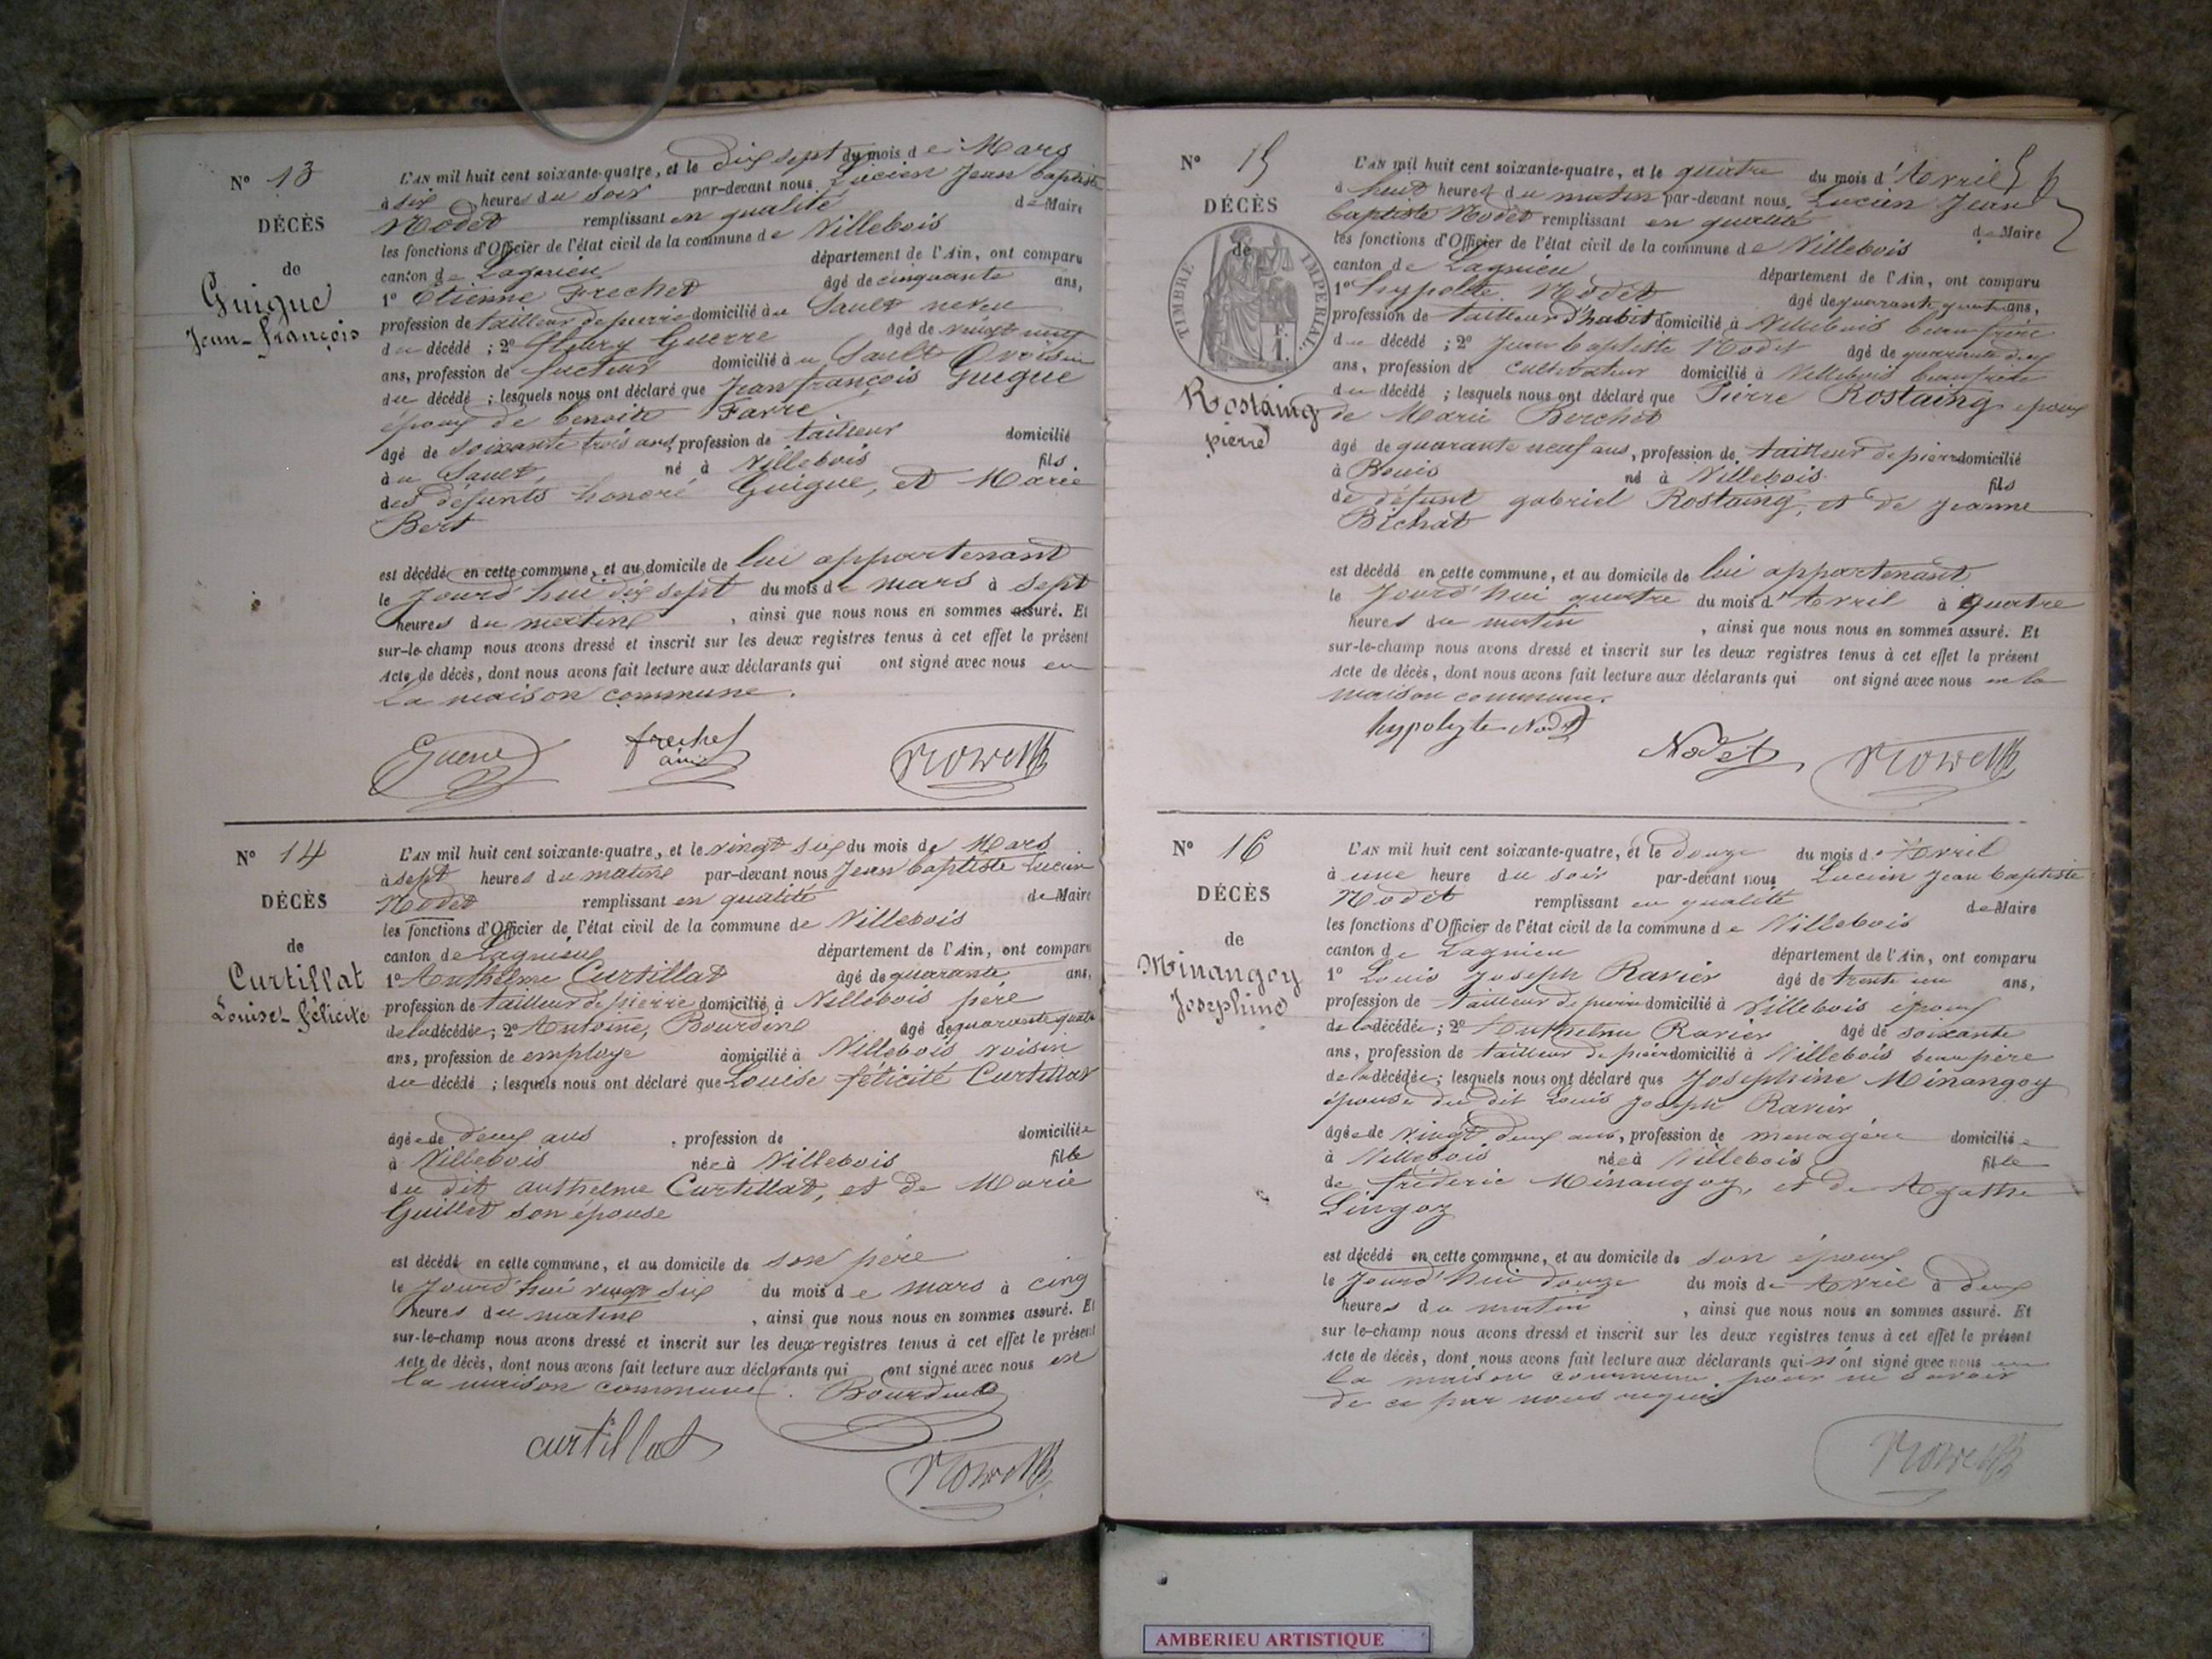 N° 13
DÉCÈS
de
Guigue
Jean-françois
L'AN mil huit cent soixante-quatre, et le dix sept du mois de Mars
à six heures du soir par-devant nous Lucien Jean baptiste
Nodet remplissant en qualité de Maire
les fonctions d'Officier de l'état civil de la commune de Villebois
canton de Lagnieu département de l'Ain, ont comparu
1° Etienne Frechet âgé de cinquante ans,
profession de tailleur de pierre domicilié au Sault neveu
du décédé ; 2° fleury Guerre âgé de vingt neuf
ans, profession de facteur domicilié au Sault voisin
du décédé ; lesquels nous ont déclaré que Jean françois Guigue
époux de benoite Favre
âgé de soixante trois ans, profession de tailleur domicilié
au Sault, né à Villebois fils
des défunts honoré Guigue, et Marie
Bert
est décédé en cette commune, et au domicile de lui appartenant
le Jourd'hui dix sept du mois de mars à sept
heures du matin , ainsi que nous nous en sommes assuré. Et
sur-le-champ nous avons dressé et inscrit sur les deux registres tenus à cet effet le présent
Acte de décès, dont nous avons fait lecture aux déclarants qui ont signé avec nous en
la maison commune.
Guerre frechet Nodet
N° 14
DÉCÈS
de
Curtillat
Louise félicité
L'AN mil huit cent soixante-quatre, et le vingt six du mois de Mars
à sept heures du matin par-devant nous Jean baptiste Lucien
Nodet remplissant en qualité de Maire
les fonctions d'Officier de l'état civil de la commune de Villebois
canton de Lagnieu département de l'Ain, ont comparu
1° Anthelme Curtillat âgé de quarante ans,
profession de tailleur de pierre domicilié à Villebois père
de la décédée; 2° Antoine, Bourdin âgé de quarante quatre
ans, profession de employé domicilié à Villebois voisin
du décédé ; lesquels nous ont déclaré que Louise félicité Curtillat
âgée de deux ans , profession de domiciliée
à Villebois née à Villebois fille
du dit anthelme Curtillat, et de Marie
Guillet son épouse
est décédé en cette commune, et au domicile de son père
le Jourd'hui vingt six du mois de mars à cinq
heures du matin , ainsi que nous nous en sommes assuré. Et
sur-le-champ nous avons dressé et inscrit sur les deux registres tenus à cet effet le présent
Acte de décès, dont nous avons fait lecture aux déclarants qui ont signé avec nous en
la maison commune. Bourdin
curtillat
Nodet
N° 15
DÉCÈS
de
TIMBRE IMPERIAL
Rostaing
pierre
L'AN mil huit cent soixante-quatre, et le quatre du mois d'Avril
à huit heures du matin par-devant nous Lucien Jean
baptiste Nodet remplissant en qualité de Maire
les fonctions d'Officier de l'état civil de la commune de Villebois
canton de Lagnieu département de l'Ain, ont comparu
1° hypolite Nodet âgé de quarante quatre ans,
profession de tailleur d'habit domicilié à Villebois beau frère
du décédé ; 2° Jean baptiste Nodet âgé de quarante deux
ans, profession de cultivateur domicilié à Villebois beau frère
du décédé ; lesquels nous ont déclaré que Pierre Rostaing époux
de Marie Berchet
âgé de quarante neuf ans, profession de tailleur de pierre domicilié
à Bouis né à Villebois fils
de défunt gabriel Rostaing, et de Jeanne
Bichat
est décédé en cette commune, et au domicile de lui appartenant
le Jourd'hui quatre du mois d'Avril à quatre
heures du matin , ainsi que nous nous en sommes assuré. Et
sur-le-champ nous avons dressé et inscrit sur les deux registres tenus à cet effet le présent
Acte de décès, dont nous avons fait lecture aux déclarants qui ont signé avec nous en la
maison commune.
hypolyte Nodet Nodet Nodet
N° 16
DÉCÈS
de
Minangoy
Josephine
L'AN mil huit cent soixante-quatre, et le douze du mois d'Avril
à une heure du soir par-devant nous Lucien Jean baptiste
Nodet remplissant en qualité de Maire
les fonctions d'Officier de l'état civil de la commune de Villebois
canton de Lagnieu département de l'Ain, ont comparu
1° Louis Joseph Ravier âgé de trente un ans,
profession de tailleur de pierre domicilié à Villebois époux
de la décédée; 2° Anthelme Ravier âgé de soixante
ans, profession de tailleur de pierre domicilié à Villebois beau père
de la décédée; lesquels nous ont déclaré que Josephine Minangoy
épouse du dit Louis Joseph Ravier
âgée de vingt deux ans, profession de menagère domiciliée
à Villebois née à Villebois fille
de fréderic Minangoy, et de Agathe
Lingoz
est décédé en cette commune, et au domicile de son époux
le Jourd'hui douze du mois de Avril à deux
heures du matin , ainsi que nous nous en sommes assuré. Et
sur le-champ nous avons dressé et inscrit sur les deux registres tenus à cet effet le présent
Acte de décès, dont nous avons fait lecture aux déclarants qui n'ont signé avec nous en
la maison commune. pour ne savoir
de ce par nous requis
Nodet
AMBERIEU ARTISTIQUE